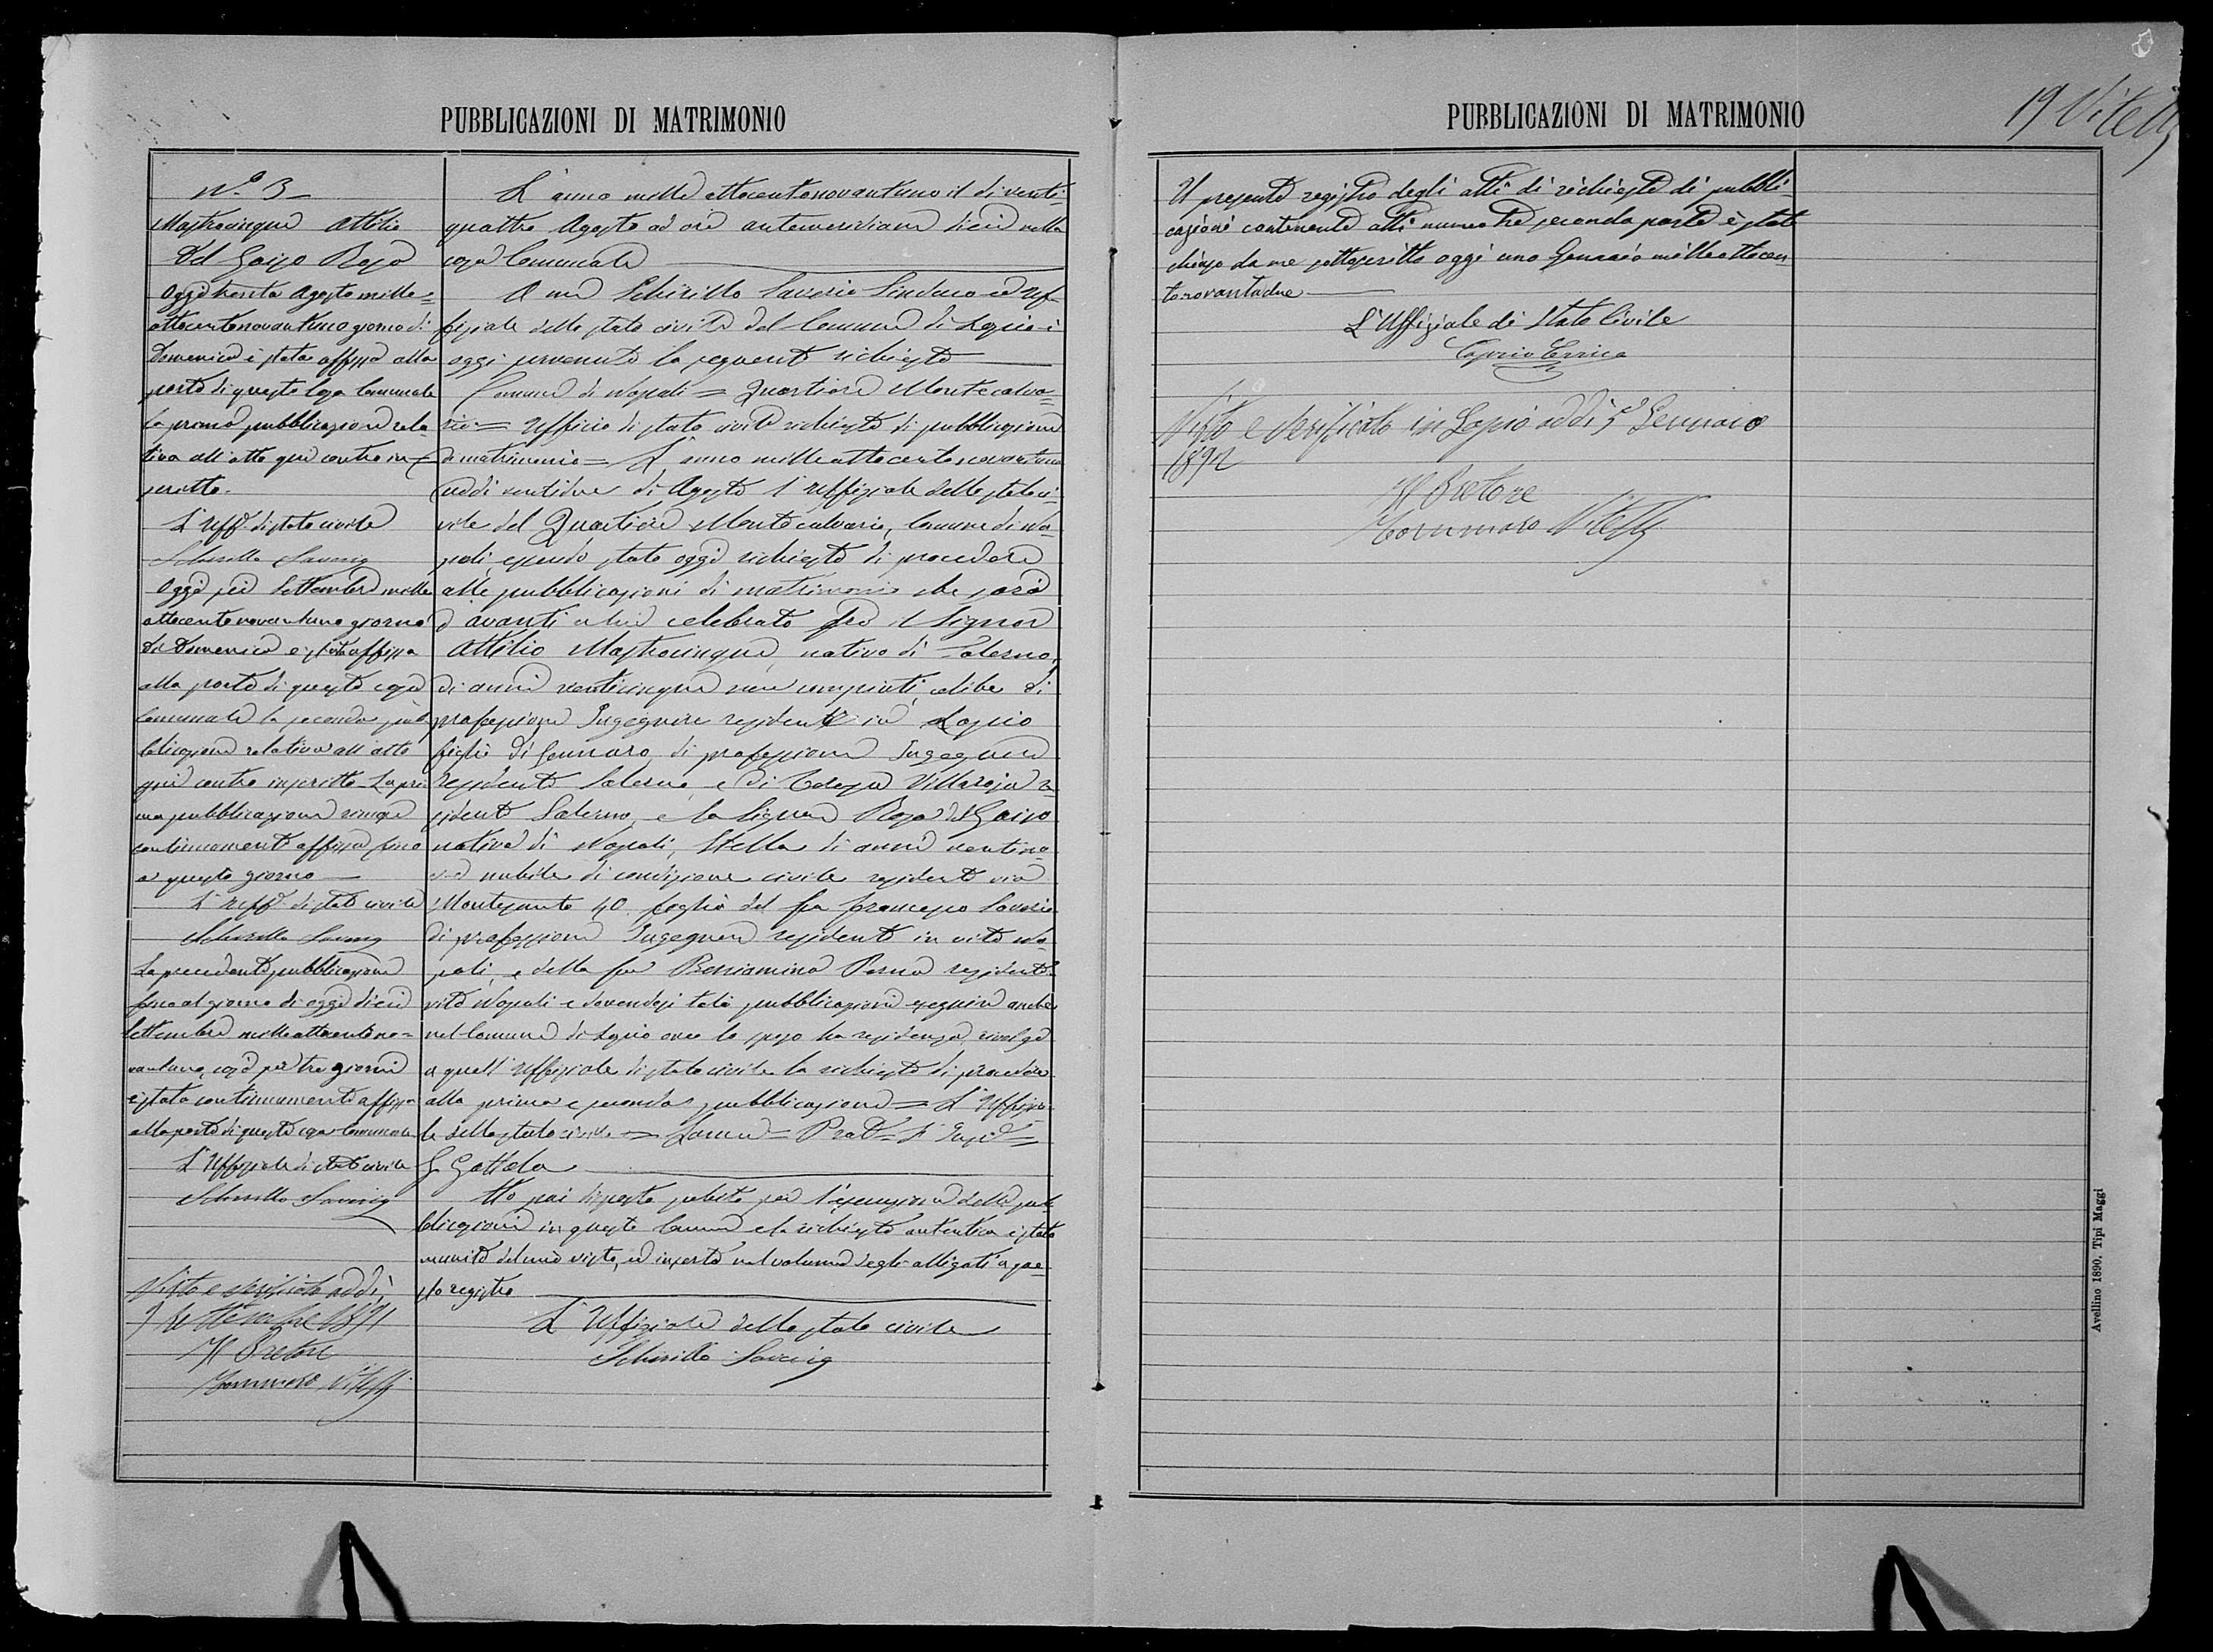 PUBBLICAZIONI DI MATRIMONIO
N.º 3
Mastrocinque Attilio
Del Gaizo Rosa
Oggi trenta Agosto mille=
ottocentonovantuno giorno di
Domenica è stata affissa alla
porta di questa Casa Comunale
la prima pubblicazione rela-
tiva all'atto qui contro in=
scritto.
L'Uff. di stato civile
Schirillo Saverio
Oggi sei Settembre mille
ottocentonovantuno giorno
di Domenica è stata affissa
alla porta di questa casa
Comunale la seconda pub
blicazione relativa all'atto
qui contro inscritto. La pri
ma pubblicazione rimase
continuamente affissa fino
a questo giorno
L'Uff. di stato civile
Schirillo Saverio
La precedente pubblicazione
fino al giorno di oggi dieci
Settembre milleottocentono=
vantuno, così per tre giorni
è stata continuamente affissa
alla porta di questa casa Comunale
L'Uffiziale di stato civile
Schirillo Saverio
Visto e verificato addì
9 Settembre 1891
Il Pretore
Tommaso Vitelli
L'anno mille ottocentonovantuno il dì venti-
quattro Agosto ad ore antemeridiane dieci nella
casa Comunale
A me Schirillo Saverio Sindaco ed Uf-
fiziale dello stato civile del Comune di Lapio è
oggi pervenuta la seguente richiesta
Comune di Napoli = Quartiere Montecalva=
rio = Ufficio di stato civile richiesta di pubblicazione
di matrimonio = L'anno milleottocentonovantuno
addì ventidue di Agosto l'Uffiziale dello stato ci-
vile del Quartiere Montecalvario, Comune di Na-
poli, essendo stato oggi richiesto di procedere
alle pubblicazioni di matrimonio che sarà
d'avanti a lui celebrato fra il Signor
Attilio Mastrocinque, nativo di Salerno,
di anni venticinque non compiuti, celibe di
professione Ingegnere residente in Lapio
figlio di Gennaro, di professione Ingegnere
residente Salerno, e di Teresa Villarosa re
sidente Salerno, e la Signora Rosa del Gaizo
nativa di Napoli, Stella di anni ventino-
ve nubile di condizione civile residente via
Montesanto 40 figlia del fu Francesco Saverio
di professione Ingegnere residente in vita Na-
poli, e della fu Beniamina Perna residente
vita Napoli e dovendosi tale pubblicazione eseguire anche
nel Comune di Lapio ove lo sposo ha residenza, rivolge
a quell'Uffiziale di stato civile la richiesta di procedere
alla prima e seconda pubblicazione = L'Uffizia-
le dello stato civile =
G Gattola
Ho poi disposto subito per l'esecuzione delle pub
blicazioni in questo Comune e la richiesta autentica è stata
munita del mio visto, ed inserta nel volume degli allegati a que-
sto registro
L'Uffiziale dello stato civile
Schirillo Saverio
PUBBLICAZIONI DI MATRIMONIO
19 Vitelli
Il presente registro degli atti di richiesta di pubbli-
cazione contenente atti numero tre seconda parte è stato
chiuso da me sottoscritto oggi uno Gennaio milleottocen
tonovantadue
L'Uffiziale di Stato Civile
Caprio Errico
Visto e Verificato in Lapio addì 5 Gennaio
1892
Il Pretore
Tommaso Vitelli
Avellino 1890. Tipi Maggi